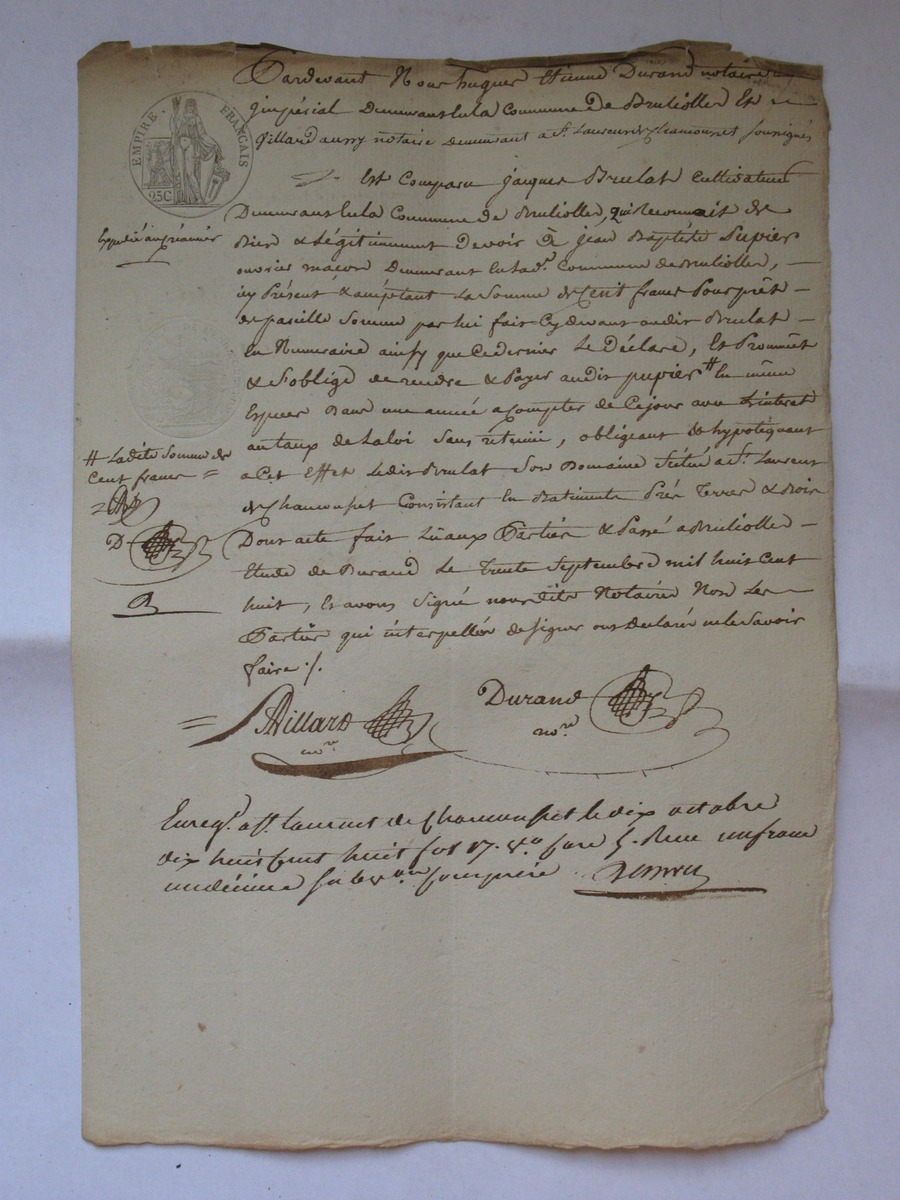 Pardevant Nous hugues Etienne Durand notaire
impérial Demeurant en la Commune de Brullioles Et
Gillard aussy notaire demeurant a St. Laurent de Chamousset soussignés
EMPIRE FRANÇAIS
25C
Est Comparu jacques Brulat Cultivateur
Demeurant en la Commune de Brullioles, qui Reconnait de
Expédié au créancier
Bien & Légitimement Devoir à jean Baptiste Pupier
ouvrier maçon Demeurant en lad. Commune de Brullioles,
icy Présent & acceptant La Somme de Cent francs Pour prêt
de pareille Somme par lui fait Cy devant audit Brulat
En Numeraire ainsy que Ce dernier Le Déclare, Et Promet
& S'oblige de rendre & Payer audit pupier # En même
Especes Dans une année a Compter de Ce jour avec L'interet
au taux de La loi Sans retenue, obligeant & hypotéquant
# Ladite Somme de
Cent francs =
a Cet Effet Ledit Brulat Son Domaine Situé a St. Laurent
de Chamousset Consistant En Batiments Prés Terres & Bois
D
Dont acte fait Lu aux Parties & Passé a Brullioles
Etude de Durand Le Trente Septembre mil huit Cent
huit, Et avons Signé nous dits Notaires Non Les
Parties qui interpellées de signer ont Déclaré ne le Savoir
faire ./.
Gillard
Durand
nore.
nore.
Enregt. a St. laurent de Chamousset le dix octobre
dix huit Cent huit fol 17. vo. Case 5. Recu un franc
un décime subvon Comprise